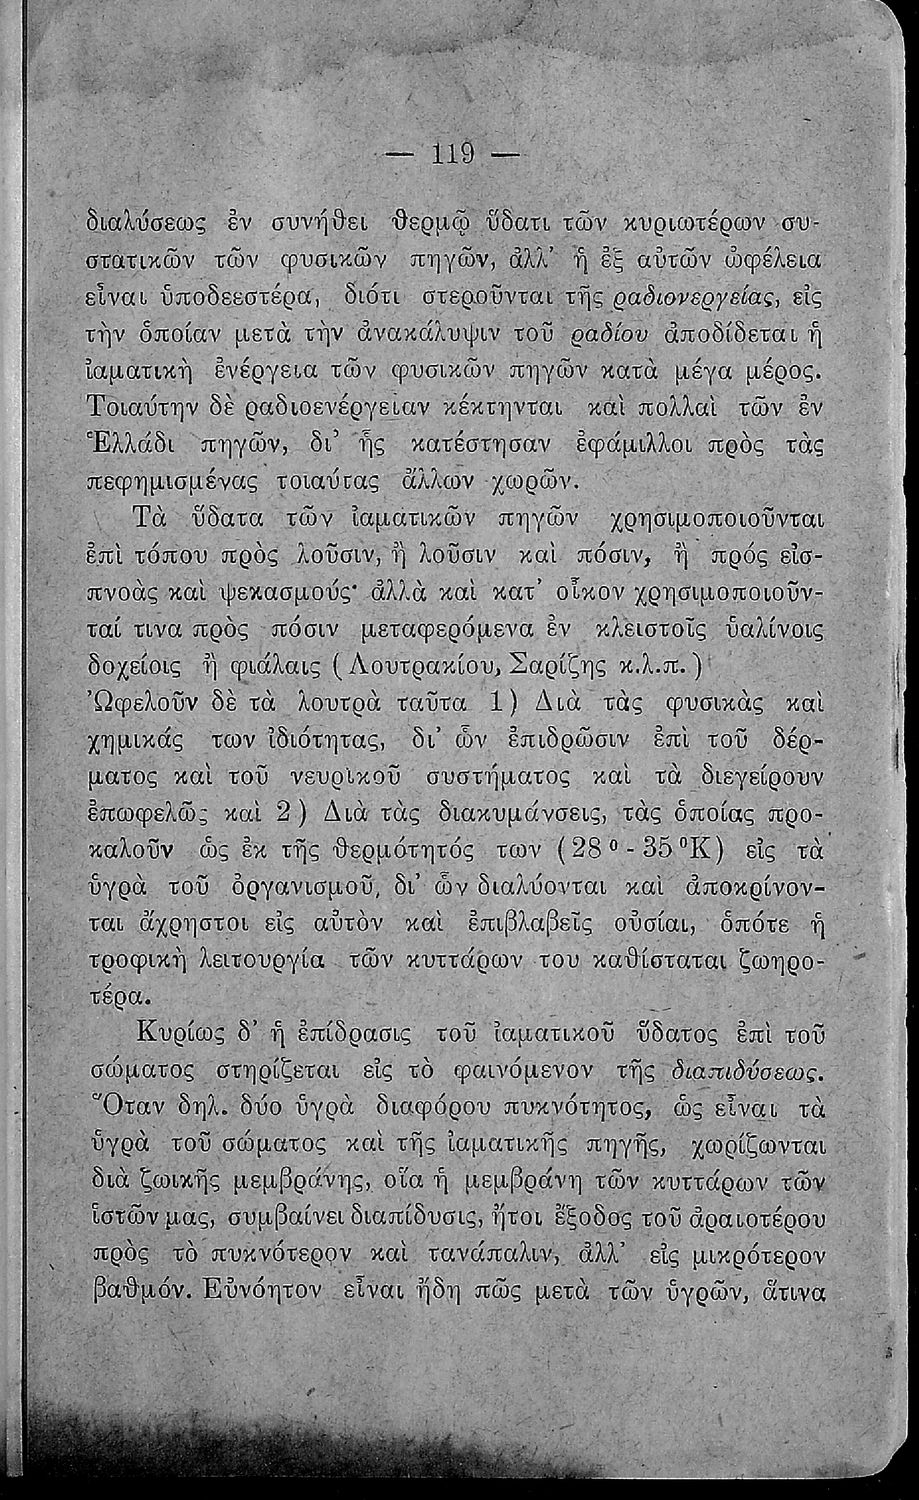 — 119 —
διαλύσεως ἐν συνήθει θερμῷ ὕδατι τῶν κυριωτέρων συ-
στατικῶν τῶν φυσικῶν πηγῶν, ἀλλ’ ἡ ἐξ αὐτῶν ὠφέλεια
εἶναι ὑποδεεστέρα, διότι στεροῦνται τῆς ραδιονεργείας, εἰς
τὴν ὁποίαν μετὰ τὴν ἀνακάλυψιν τοῦ ραδίου ἀποδίδεται ἡ
ἰαματικὴ ἐνέργεια τῶν φυσικῶν πηγῶν κατὰ μέγα μέρος.
Τοιαύτην δὲ ραδιοενέργειαν κέκτηνται καὶ πολλαὶ τῶν ἐν
Ἑλλάδι πηγῶν, δι’ ἧς κατέστησαν ἐφάμιλλοι πρὸς τὰς
πεφημισμένας τοιαύτας ἄλλων χωρῶν.
Τὰ ὕδατα τῶν ἰαματικῶν πηγῶν χρησιμοποιοῦνται
ἐπὶ τόπου πρὸς λοῦσιν, ἢ λοῦσιν καὶ πόσιν, ἢ πρός εἰσ-
πνοὰς καὶ ψεκασμούς· ἀλλὰ καὶ κατ’ οἶκον χρησιμοποιοῦν-
ταί τινα πρὸς πόσιν μεταφερόμενα ἐν κλειστοῖς ὑαλίνοις
δοχείοις ἢ φιάλαις (Λουτρακίου, Σαρίζης κ.λ.π.)
Ὠφελοῦν δὲ τὰ λουτρὰ ταῦτα 1) Διὰ τὰς φυσικὰς καὶ
χημικάς των ἰδιότητας, δι’ ὧν ἐπιδρῶσιν ἐπὶ τοῦ δέρ-
ματος καὶ τοῦ νευρικοῦ συστήματος καὶ τὰ διεγείρουν
ἐπωφελῶς καὶ 2) Διὰ τὰς διακυμάνσεις, τὰς ὁποίας προ-
καλοῦν ὡς ἐκ τῆς θερμότητός των (28° - 35°Κ) εἰς τὰ
ὑγρὰ τοῦ ὀργανισμοῦ, δι’ ὧν διαλύονται καὶ ἀποκρίνον-
ται ἄχρηστοι εἰς αὐτὸν καὶ ἐπιβλαβεῖς οὐσίαι, ὁπότε ἡ
τροφικὴ λειτουργία τῶν κυττάρων του καθίσταται ζωηρο-
τέρα.
Κυρίως δ’ ἡ ἐπίδρασις τοῦ ἰαματικοῦ ὕδατος ἐπὶ τοῦ
σώματος στηρίζεται εἰς τὸ φαινόμενον τῆς διαπιδύσεως.
Ὅταν δηλ. δύο ὑγρὰ διαφόρου πυκνότητος, ὡς εἶναι τὰ
ὑγρὰ τοῦ σώματος καὶ τῆς ἰαματικῆς πηγῆς, χωρίζωνται
διὰ ζωικῆς μεμβράνης, οἵα ἡ μεμβράνη τῶν κυττάρων τῶν
ἱστῶν μας, συμβαίνει διαπίδυσις, ἤτοι ἔξοδος τοῦ ἀραιοτέρου
πρὸς τὸ πυκνότερον καὶ τανάπαλιν, ἀλλ’ εἰς μικρότερον
βαθμόν. Εὐνόητον εἶναι ἤδη πῶς μετὰ τῶν ὑγρῶν, ἅτινα